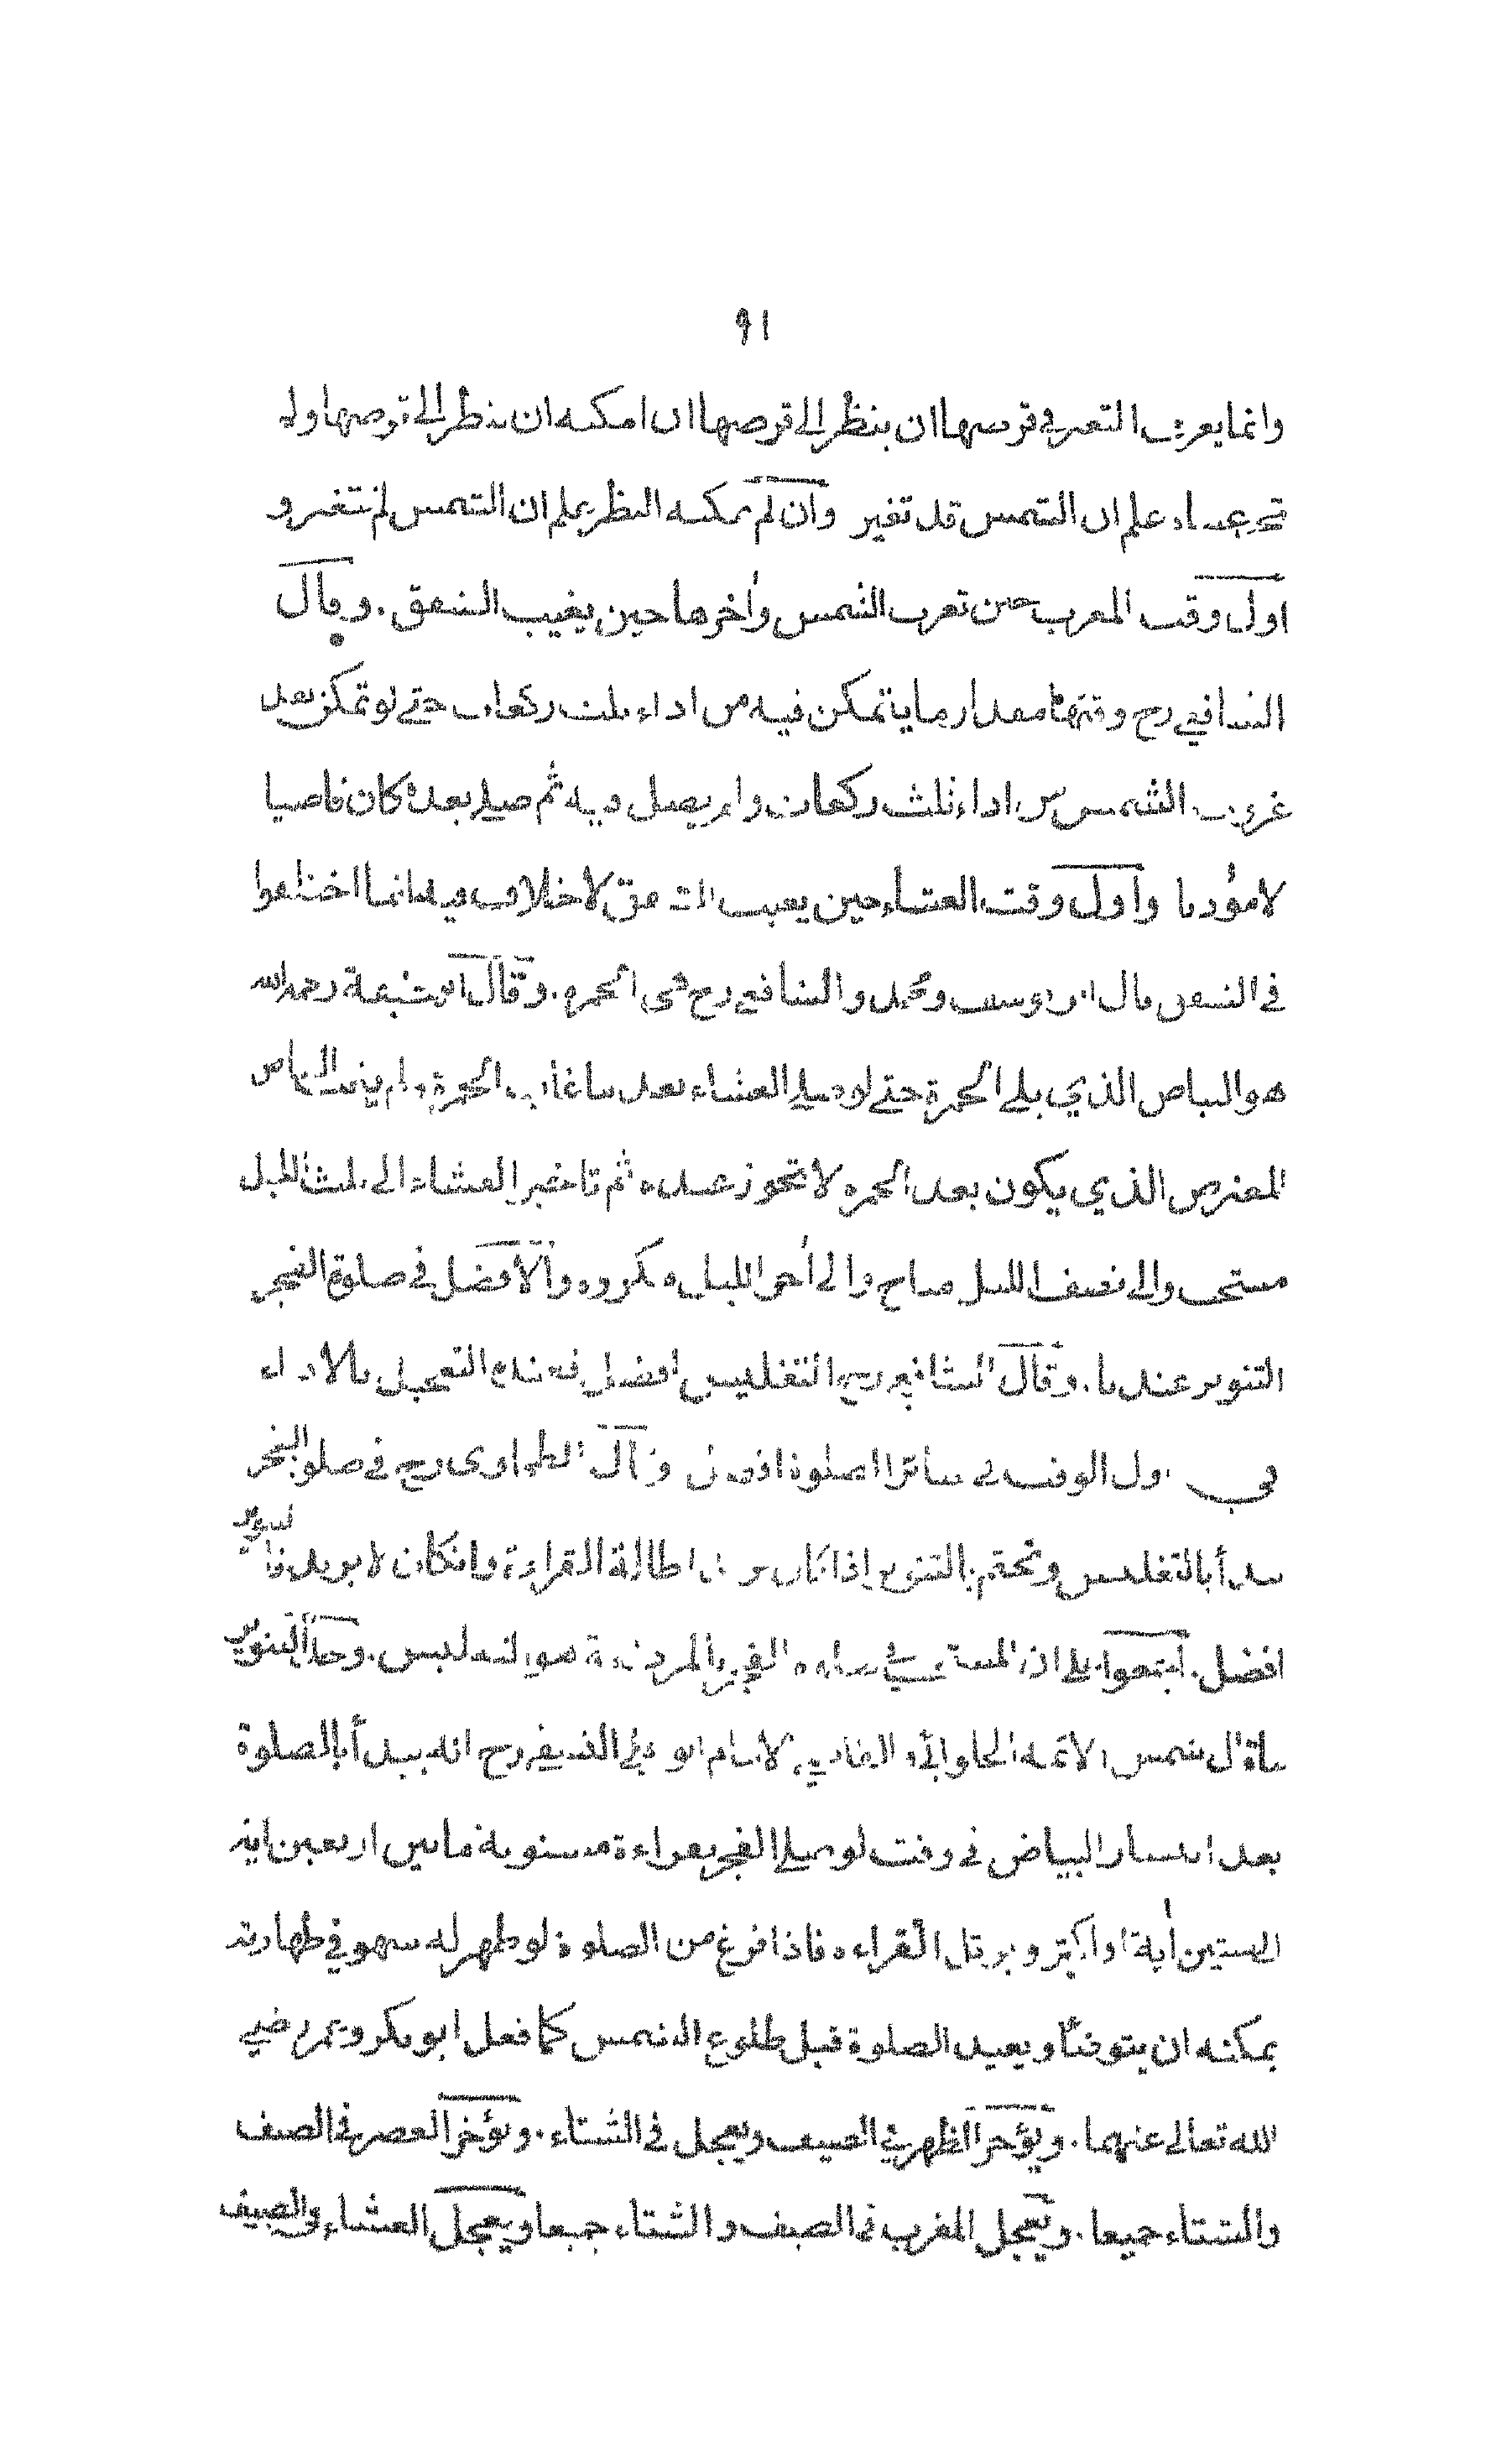 ٩١
وانما يعرف التغير في قرصها ان ينظر الى قرصها ان امكنه ان ينظر الى قرصها وله
علم ان الشمس قد تغير وان لم يمكنه النظر يعلم ان الشمس لم تتغير و
اول وقت المغرب حين تغرب الشمس وأخرها حين يغيب الشفق. وقال
الشافعي رح وقتها مقدار ما يتمكن فيه من اداء ثلث ركعات حتى لو تمكن بعد
غروب الشمس من اداء ثلث ركعات ولم يصل فيه ثم صلى بعده كان قاضيا
لا مؤديا واول وقت العشاء حين يغيب الشفق لا خلاف فيه انما اختلفوا
في الشفق قال ابو يوسف ومحمد والشافعي رح هي الحمرة. وقال ابو حنيفة رحمه الله
هو البياض الذي يلي الحمرة حتى لو صلى العشاء بعد ما غابت الحمرة ولم يغب البياض
المعترض الذي يكون بعد الحمرة لا تجوز عنده ثم تاخير العشاء الى ثلث الليل
مستحب والى نصف الليل مباح والى أخر الليل مكروه والافضل في صلوة الفجر
التنوير عندنا. وقال الشافعي رح التغليس افضل التعجيل بالاداء
في اول الوقت في سائر الصلوة افضل وقال الطحاوي رح في صلوة الفجر
يبدأ بالتغليس ويختم بالتنوير إذا كان يريد اطالة القراءة وان كان لا يريد فالتنوير
افضل. اجمعوا على ان المستحب في الفجر بالمزدلفة هو التغليس. وحد التنوير
ما قال شمس الائمة الحلوائي والقاضي الامام ابو علي النسفي رح انه يبدأ بالصلوة
بعد انتشار البياض في وقت لو صلى الفجر بقراءة مسنونة ما بين اربعين اية
الى ستين أية او اكثر ويرتل القراءة فاذا فرغ من الصلوة لو ظهر له سهو في طهارته
يمكنه ان يتوضأ ويعيد الصلوة قبل طلوع الشمس كما فعل ابو بكر وعمر رضي
الله تعالى عنهما. ويؤخر الظهر في الصيف ويعجل في الشتاء. ويؤخر العصر في الصيف
والشتاء جميعا. ويعجل المغرب في الصيف والشتاء جميعا ويعجل العشاء في الصيف